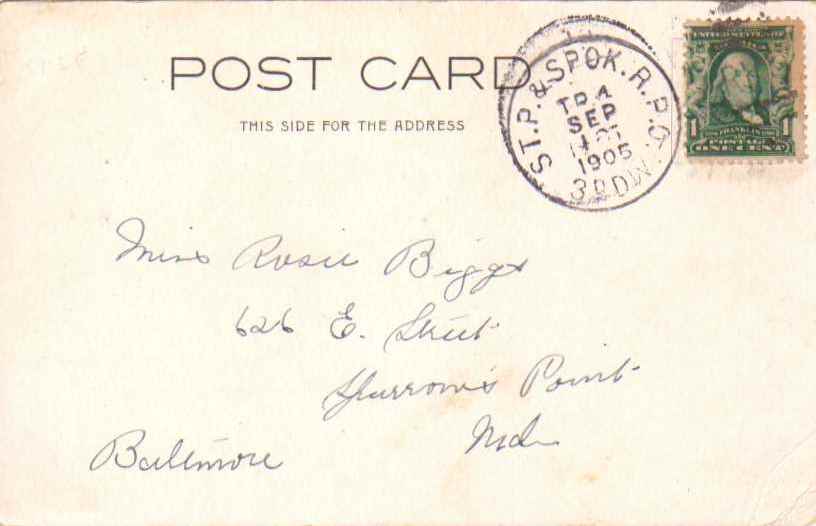 POST CARD
THIS SIDE FOR THE ADDRESS
ST.P. & SPOK. R.P.O.
TR.4
SEP
1905
3RD DIV
UNITED STATES OF
AMERICA
1 FRANKLIN 1
POSTAGE
ONE CENT
Miss Rosie Biggs
626 E. Street
Sparrows Point
Md
Baltimore